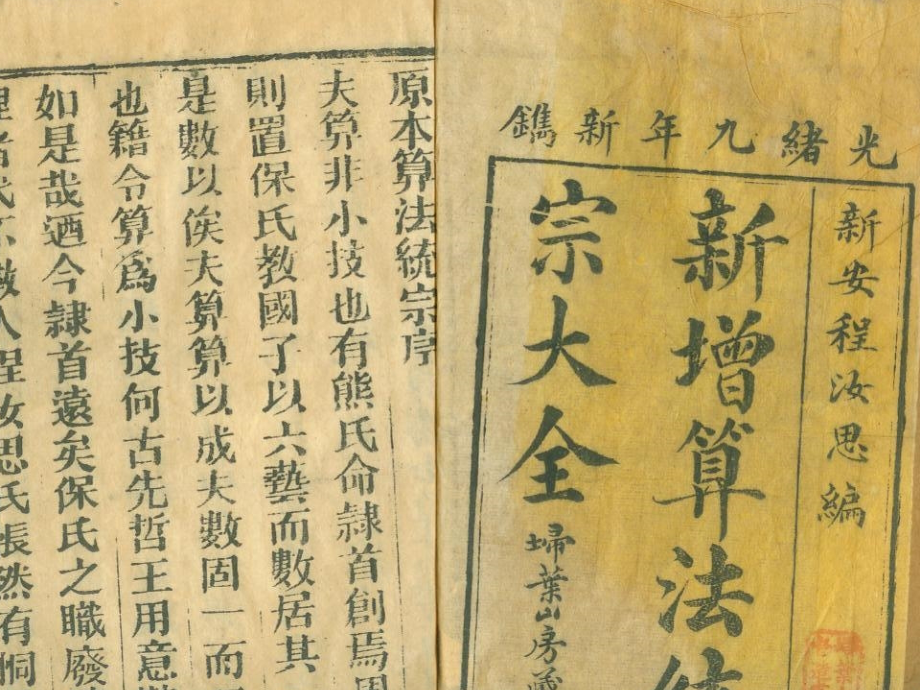 光緒九年新鐫
新安程汝思編
新增算法統
宗大全
埽葉山房藏
原本算法統宗序
夫算非小技也有熊氏命隸首創焉周
則置保氏教國子以六藝而數居其
是數以俟夫算算以成夫數固一而
也籍令算爲小技何古先哲王用意
如是哉迺今隸首遠矣保氏之職廢
人程汝思氏悵然有恫